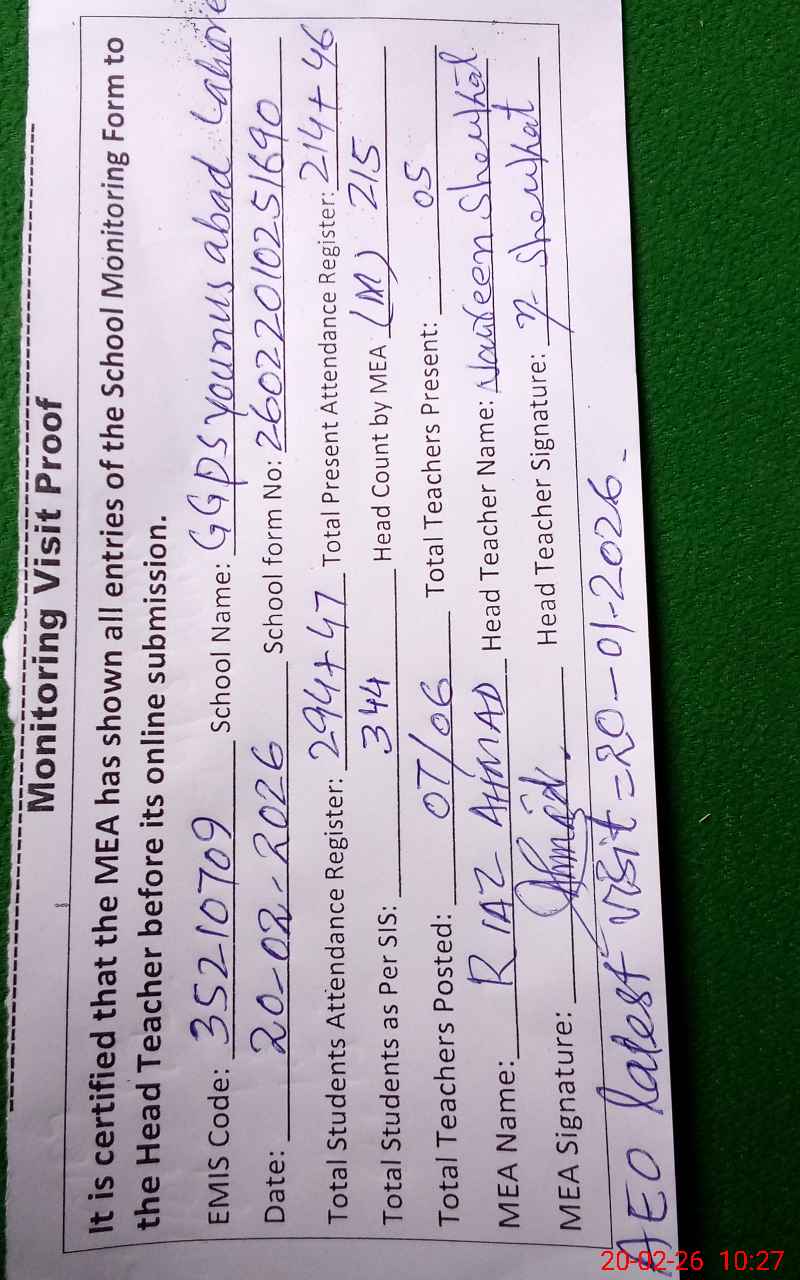 Monitoring Visit Proof
It is certified that the MEA has shown all entries of the School Monitoring Form to
the Head Teacher before its online submission.
EMIS Code: 35210709 School Name: GGPS younus abad Lahore
Date: 20-02-2026 School form No: 26022010251690
Total Students Attendance Register: 294+47 Total Present Attendance Register: 214+46
Total Students as Per SIS: 344 Head Count by MEA (M) 215
Total Teachers Posted: 07/06 Total Teachers Present: 05
MEA Name: RIAZ AHMAD Head Teacher Name: Shoukat
MEA Signature: Ahmad. Head Teacher Signature: Shoukat
AEO latest visit = 20-01-2026.
20-02-26 10:27